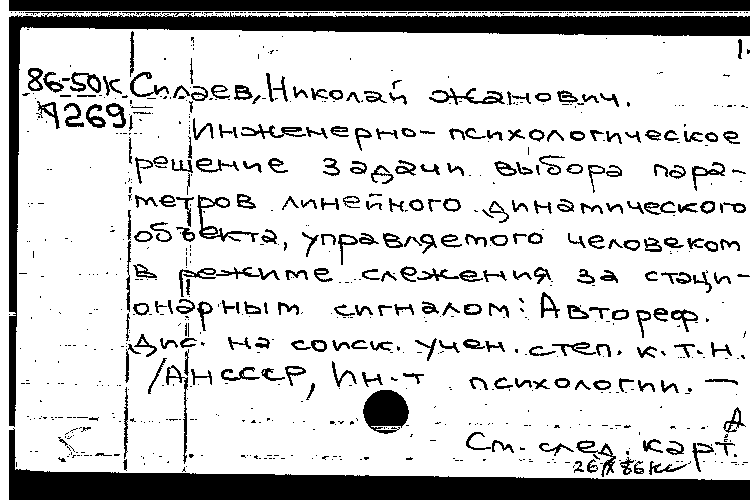 1.
86-50К Силаев, Николай Жанович.
269
Инженерно-психологическое
решение задачи выбора пара-
метров линейного динамического
объекта, управляемого человеком
в режиме слежения за стаци-
онарным сигналом: Автореф.
Дис. на соиск. учен. степ. к.т.н.
/АНСССР, Ин-т психологии. —
См. след. карт.